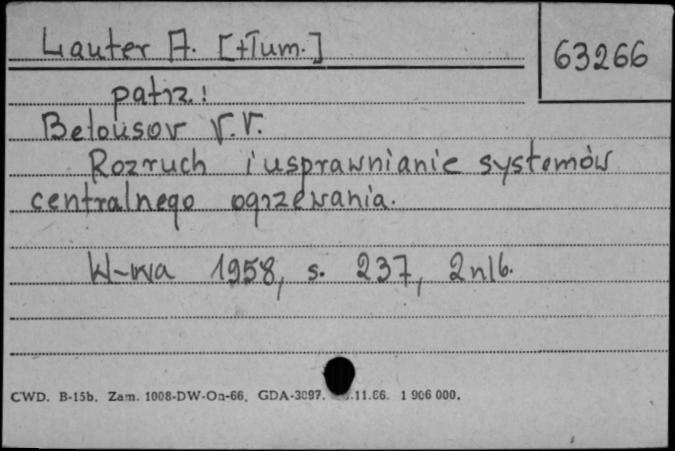 Lauter A. [tłum.]
63266
patrz:
Belousov V.V.
Rozruch i usprawnianie systemów
centralnego ogrzewania.
W-wa 1958, s. 237, 2 nlb.
CWD. B-15b. Zam. 1008-DW-On-66. GDA-3097. .11.66. 1 906 000.